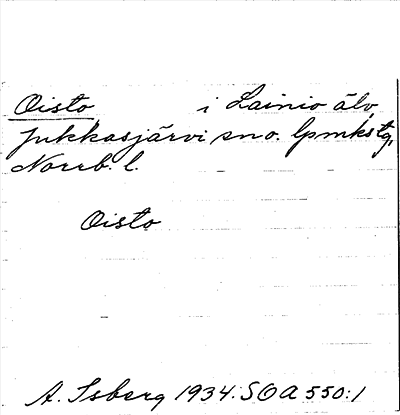 Oisto i Lainio älv,
Jukkasjärvi sno. lpmkstg,
Norrb. l.
Oisto
A. Isberg 1934. SOA 550:1